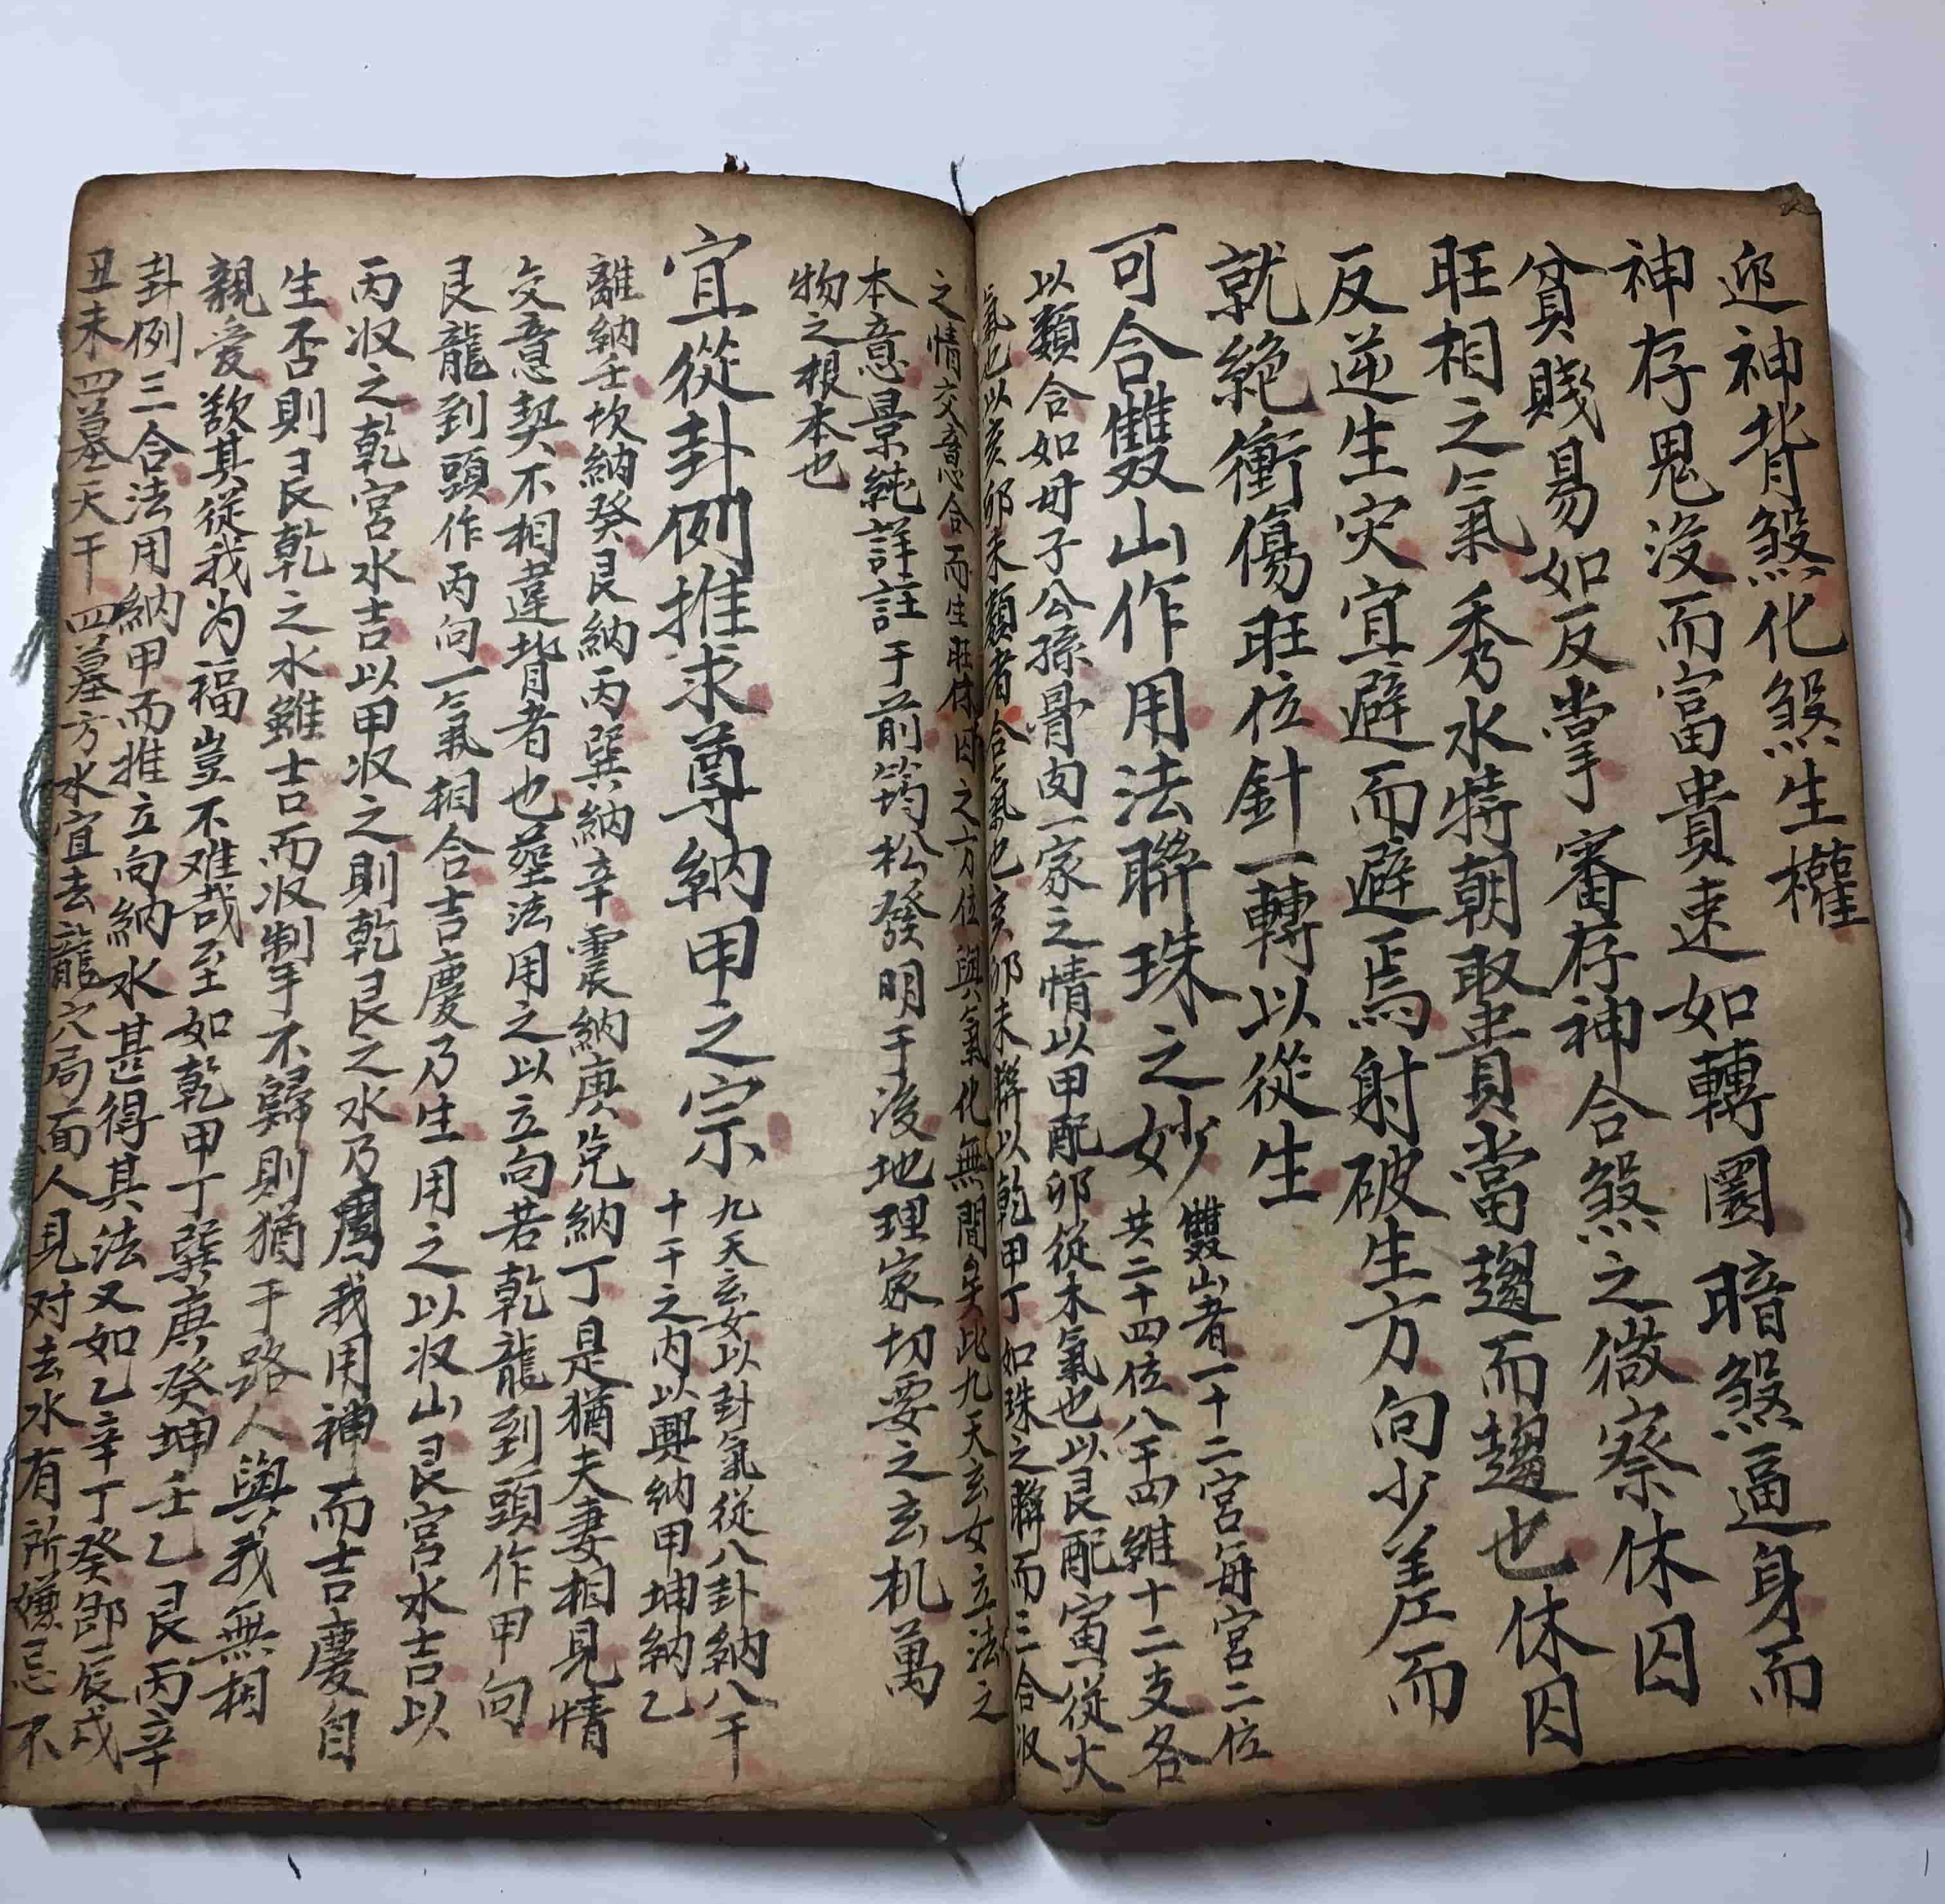 迎神背煞化煞生權
神存鬼沒而富貴速如轉圜暗煞逼身而
貧賤易如反掌審存神合煞之微察休囚
旺相之氣秀水特朝取貴當趨而趨也休囚
反逆生灾宜避而避焉射破生方向少差而
就絶衝傷旺位針一轉以從生
可合雙山作用法聯珠之妙
雙山者一十二宮每宮二位
共二十四位八干四維十二支各
以類合如母子公孫骨肉一家之情以甲配卯從木氣也以艮配寅從火
氣也以亥卯未類者合氣也亥卯未聯以乾甲丁如珠之聯而三合収
之情交意合而生旺休囚之方位與氣化無間矣此九天玄女立法之
本意景純詳註于前筠松發明于後地理家切要之玄机萬
物之根本也
宜從卦例推求尊納甲之宗
九天玄女以卦氣從八卦納八干
十干之內以興納甲坤納乙
離納壬坎納癸艮納丙巽納辛震納庚兑納丁是猶夫妻相見情
交意契不相違背者也塟法用之以立向若乾龍到頭作甲向
艮龍到頭作丙向一氣相合吉慶乃生用之以収山艮宮水吉以
丙収之乾宮水吉以甲収之則乾艮之水乃爲我用神而吉慶自
生否則艮乾之水雖吉而収制不歸則猶于路人與我無相
親愛欲其從我为福豈不难哉至如乾甲丁巽庚癸坤壬乙艮丙辛
卦例三合法用納甲而推立向納水甚得其法又如乙辛丁癸即辰戌
丑未四墓天干四墓方水宜去龍穴局面人見对去水有所嫌忌不